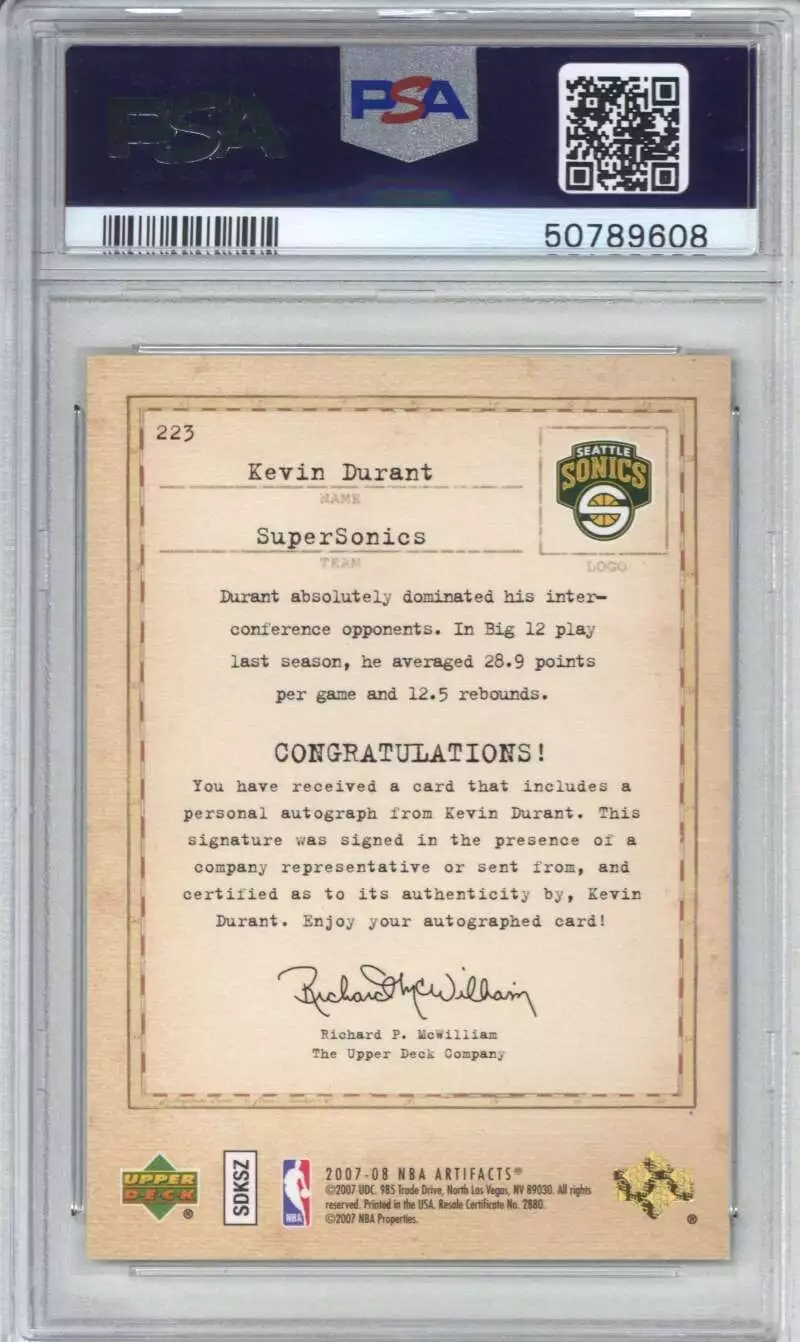 PSA
PSA
50789608
223
Kevin Durant
NAME
SuperSonics
TEAM
SEATTLE
SONICS
LOGO
Durant absolutely dominated his inter-
conference opponents. In Big 12 play
last season, he averaged 28.9 points
per game and 12.5 rebounds.
CONGRATULATIONS!
You have received a card that includes a
personal autograph from Kevin Durant. This
signature was signed in the presence of a
company representative or sent from, and
certified as to its authenticity by, Kevin
Durant. Enjoy your autographed card!
Richard McWilliam
Richard P. McWilliam
The Upper Deck Company
UPPER
DECK
®
SDKSZ
NBA
2007-08 NBA ARTIFACTS®
©2007 UDC. 985 Trade Drive, North Las Vegas, NV 89030. All rights
reserved. Printed in the USA. Resale Certificate No. 2880.
©2007 NBA Properties.
®